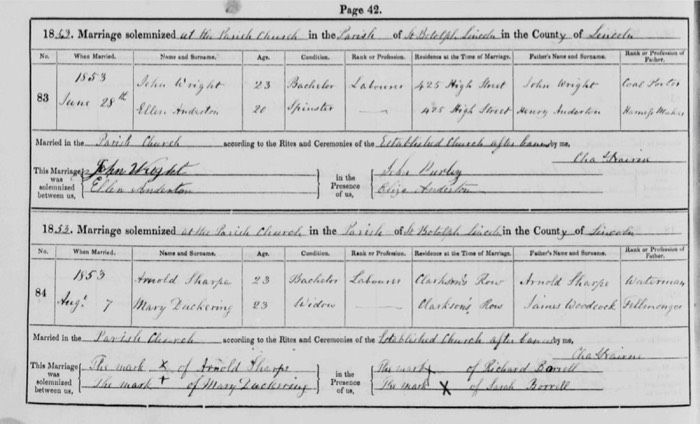 Page 42.
1853. Marriage solemnized at the Parish Church in the Parish of St Botolph Lincoln in the County of Lincoln
No. When Married. Name and Surname. Age. Condition. Rank or Profession. Residence at the Time of Marriage. Father's Name and Surname. Rank or Profession of Father.
83 1853 June 28th
John Wright 23 Bachelor Labourer 425 High Street John Wright Coal Porter
Ellen Anderton 20 Spinster — 425 High Street Henry Anderton Harness Maker
Married in the Parish Church according to the Rites and Ceremonies of the Established Church after Banns by me,
Chas
This Marriage was solemnized between us, John Wright Ellen Anderton in the Presence of us, John Eliza Anderton
1853. Marriage solemnized at the Parish Church in the Parish of St Botolph Lincoln in the County of Lincoln
No. When Married. Name and Surname. Age. Condition. Rank or Profession. Residence at the Time of Marriage. Father's Name and Surname. Rank or Profession of Father.
84 1853 Augt 7
Arnold Sharpe 23 Bachelor Labourer Clarkson's Row Arnold Sharpe Waterman
Mary Duckering 23 Widow — Clarkson's Row James Woodcock Fellmonger
Married in the Parish Church according to the Rites and Ceremonies of the Established Church after Banns by me,
Chas
This Marriage was solemnized between us, The mark X of Arnold Sharpe The mark + of Mary Duckering in the Presence of us, The mark + of Richard Borrell The mark X of Sarah Borrell